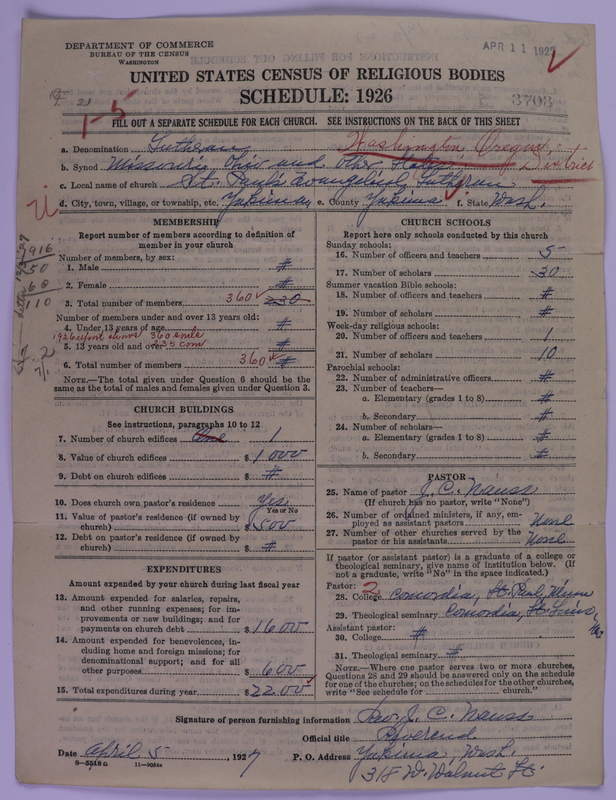 DEPARTMENT OF COMMERCE
BUREAU OF THE CENSUS
WASHINGTON
APR 11 1927
UNITED STATES CENSUS OF RELIGIOUS BODIES
SCHEDULE: 1926
3703
1-5
FILL OUT A SEPARATE SCHEDULE FOR EACH CHURCH. SEE INSTRUCTIONS ON THE BACK OF THIS SHEET
a. Denomination Lutheran Washington Oregon
b. Synod Missouri, Ohio and other States District
c. Local name of church St. Paul's Evangelical Lutheran
d. City, town, village, or township, etc. Yakima e. County Yakima f. State Wash.
MEMBERSHIP
Report number of members according to definition of
member in your church
Number of members, by sex:
1. Male #
2. Female #
3. Total number of members 360 230
Number of members under and over 13 years old:
4. Under 13 years of age #
5. 13 years old and over #
6. Total number of members 360 #
NOTE.—The total given under Question 6 should be the
same as the total of males and females given under Question 3.
CHURCH BUILDINGS
See instructions, paragraphs 10 to 12
7. Number of church edifices One 1
8. Value of church edifices $ 1000
9. Debt on church edifices $ #
10. Does church own pastor's residence Yes
Yes or No
11. Value of pastor's residence (if owned by
church) $ 500
12. Debt on pastor's residence (if owned by
church) $ #
EXPENDITURES
Amount expended by your church during last fiscal year
13. Amount expended for salaries, repairs,
and other running expenses; for im-
provements or new buildings; and for
payments on church debt $ 1600
14. Amount expended for benevolences, in-
cluding home and foreign missions; for
denominational support; and for all
other purposes $ 600
15. Total expenditures during year $ 2200
CHURCH SCHOOLS
Report here only schools conducted by this church
Sunday schools:
16. Number of officers and teachers 5
17. Number of scholars 30
Summer vacation Bible schools:
18. Number of officers and teachers #
19. Number of scholars #
Week-day religious schools:
20. Number of officers and teachers 1
21. Number of scholars 10
Parochial schools:
22. Number of administrative officers #
23. Number of teachers—
a. Elementary (grades 1 to 8) #
b. Secondary #
24. Number of scholars—
a. Elementary (grades 1 to 8) #
b. Secondary #
PASTOR
25. Name of pastor J. C. Nauss
(If church has no pastor, write "None")
26. Number of ordained ministers, if any, em-
ployed as assistant pastors None
27. Number of other churches served by the
pastor or his assistants None
If pastor (or assistant pastor) is a graduate of a college or
theological seminary, give name of institution below. (If
not a graduate, write "No" in the space indicated.)
Pastor:
28. College Concordia, St. Paul, Minn
29. Theological seminary Concordia, St. Louis, Mo.
Assistant pastor:
30. College #
31. Theological seminary #
NOTE.—Where one pastor serves two or more churches,
Questions 28 and 29 should be answered only on the schedule
for one of the churches; on the schedules for the other churches,
write "See schedule for church."
Signature of person furnishing information Rev. J. C. Nauss
Official title Reverend
Date April 5, 1927 P. O. Address Yakima, Wash.
318 W. Walnut St.